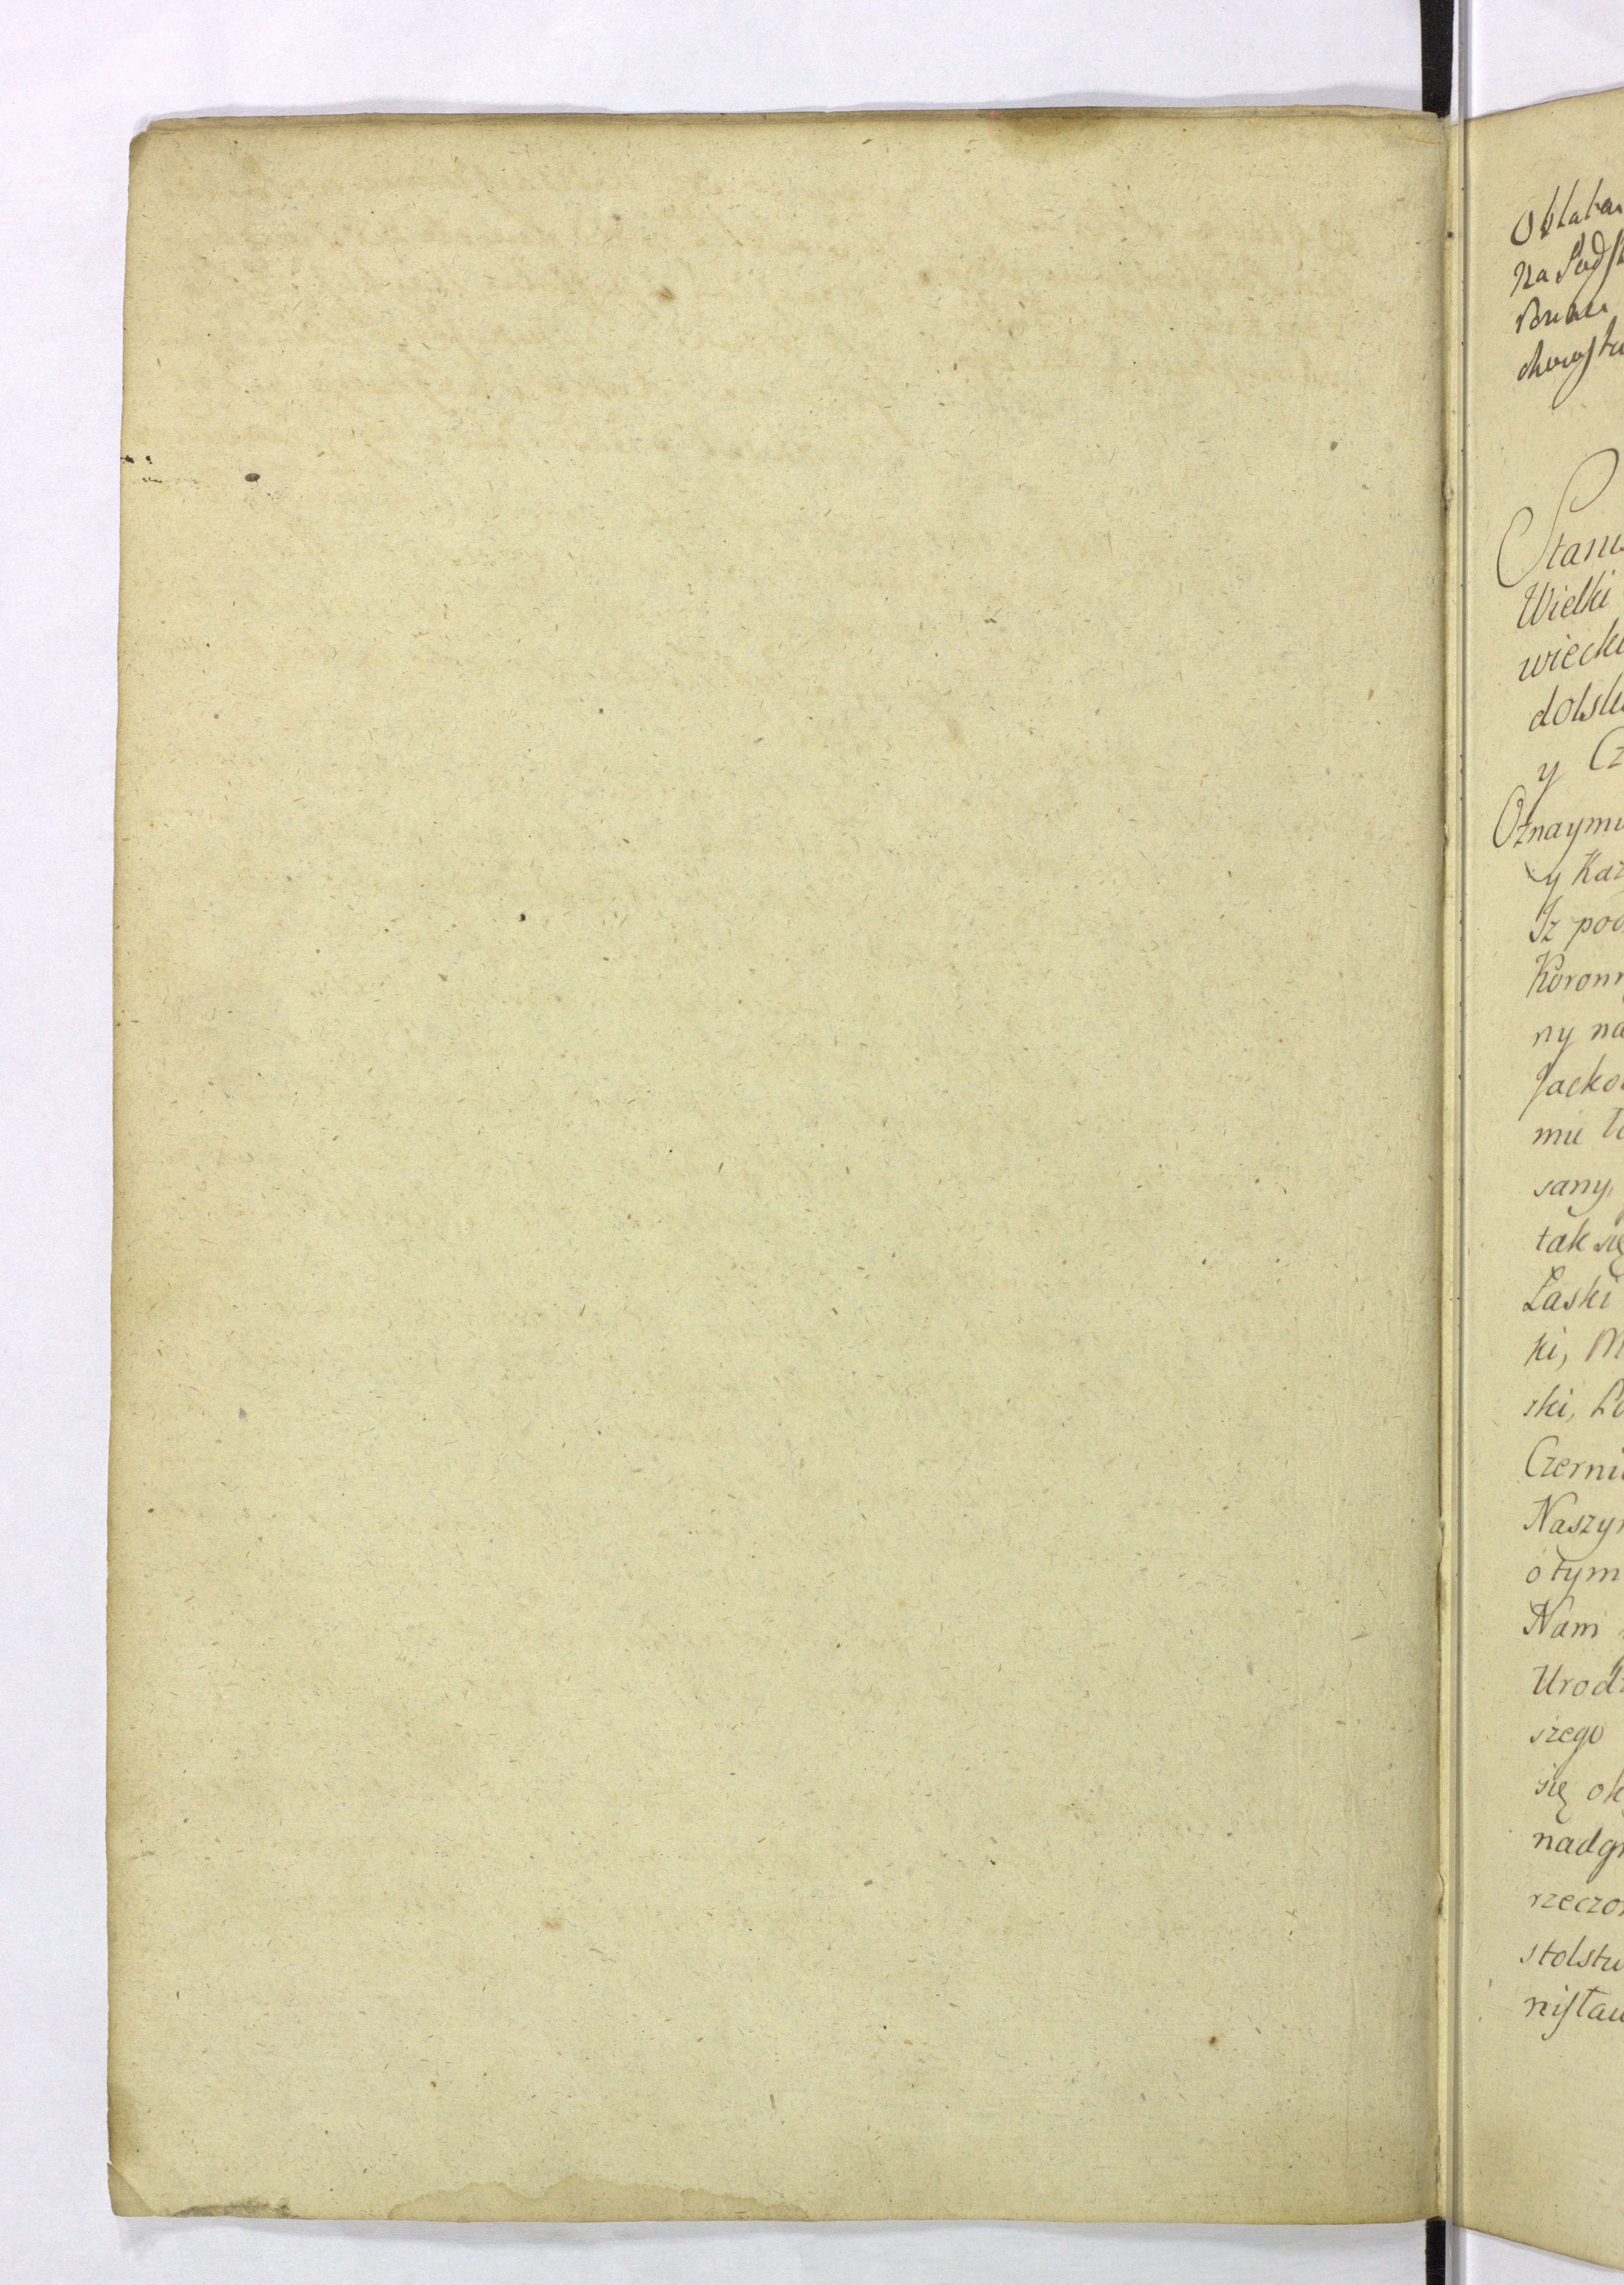 Oblata
Na
Stani
Wielki
wiecki
dolski
y Cz
Oznaymu
y Kaz
Iż pod
Koronn
ny na
Jacko
mu to
sany,
tak się
Łaski
ki, M
ski, Po
Czerni
Naszym
o tym
Nam
Urodz
szego
się ok
nadgr
rzeczon
stolstw
nisław